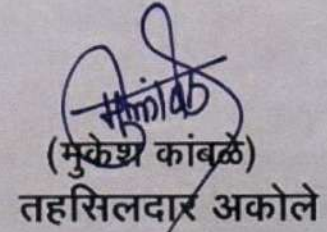 (मुकेश कांबळे)
तहसिलदार अकोले